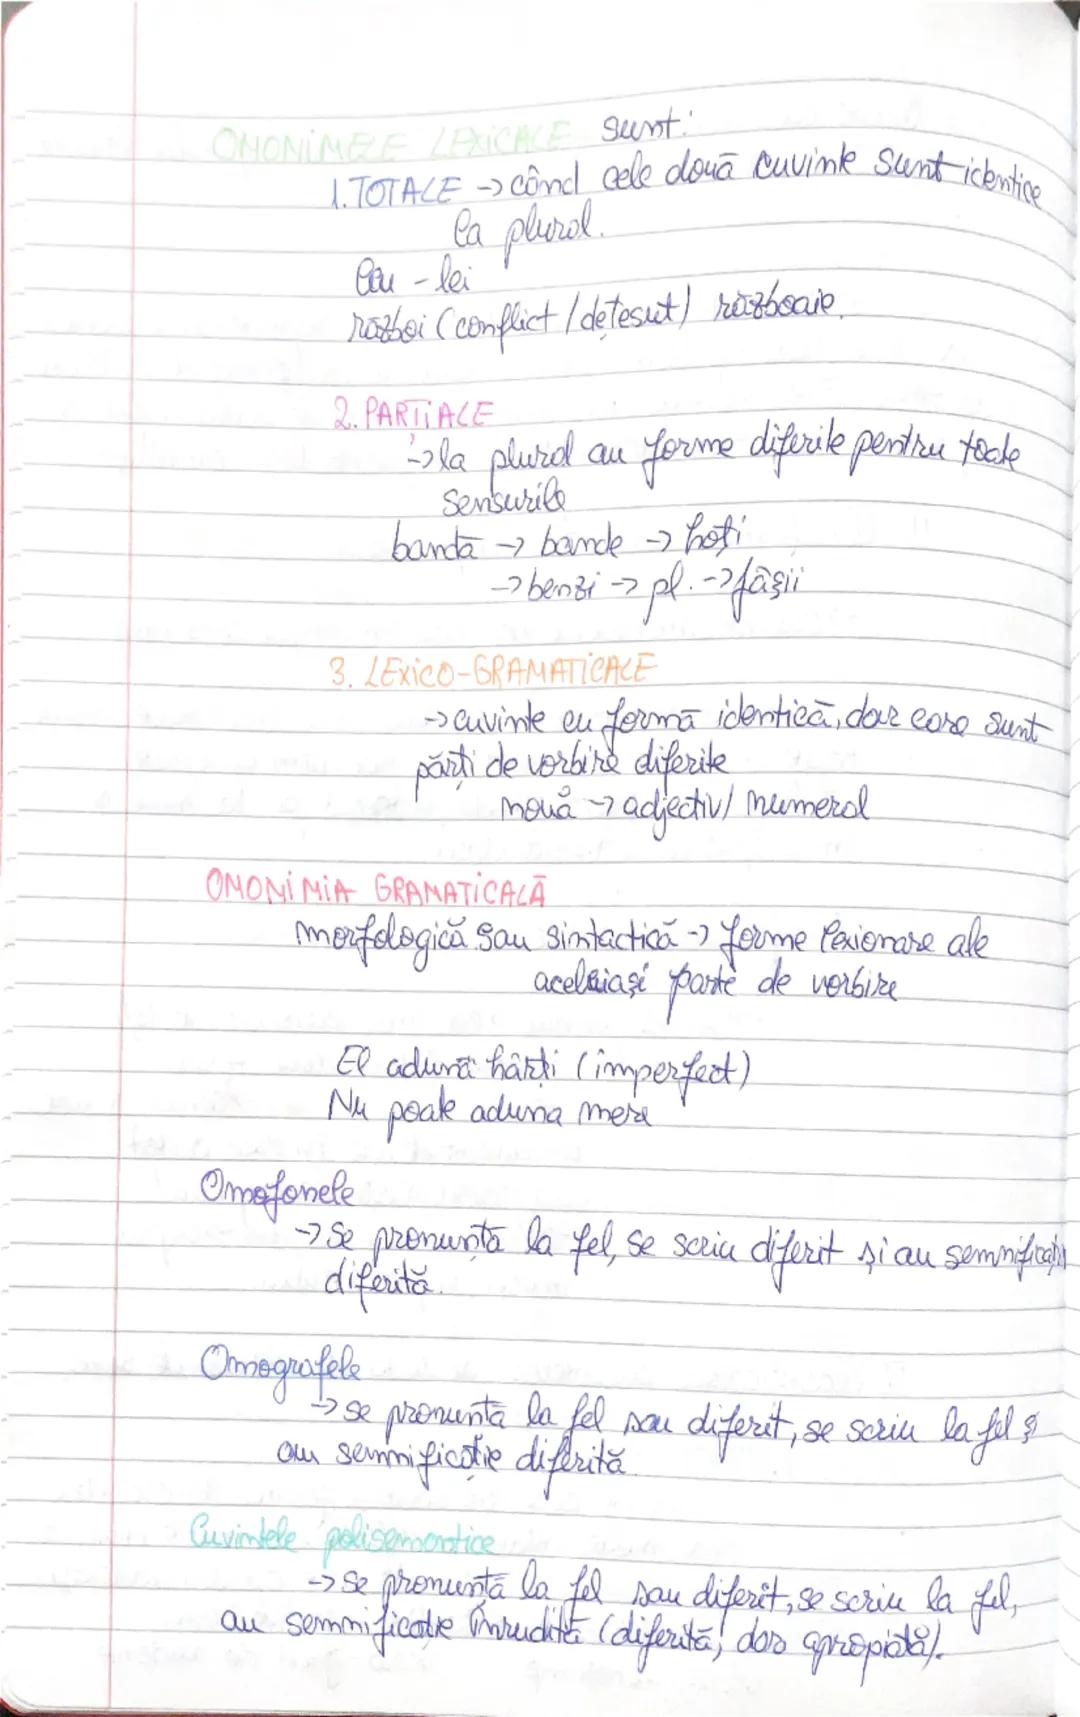 OMONIMELE LEXICALE sunt:
1. TOTALE -> când cele două cuvinte sunt identice
la plural.
leu - lei
război (conflict / de țesut) războaie.
2. PARȚIALE
-> la plural au forme diferite pentru toate
sensurile
bandă -> bande -> hoți
-> benzi -> pl. -> fâșii
3. LEXICO-GRAMATICALE
-> cuvinte cu formă identică, dar care sunt
părți de vorbire diferite
nouă -> adjectiv / numeral
OMONIMIA GRAMATICALĂ
morfologică sau sintactică -> forme lexionare ale
aceleiași parte de vorbire
El adună hărți (imperfect)
Nu poate aduna mere
Omofonele
-> Se pronunță la fel, se scriu diferit și au semnificații
diferită.
Omografele
-> se pronunță la fel sau diferit, se scriu la fel ș
au semnificație diferită.
Cuvintele polisemantice
-> Se pronunță la fel sau diferit, se scriu la fel,
au semnificație înrudită (diferită, dar apropiată).